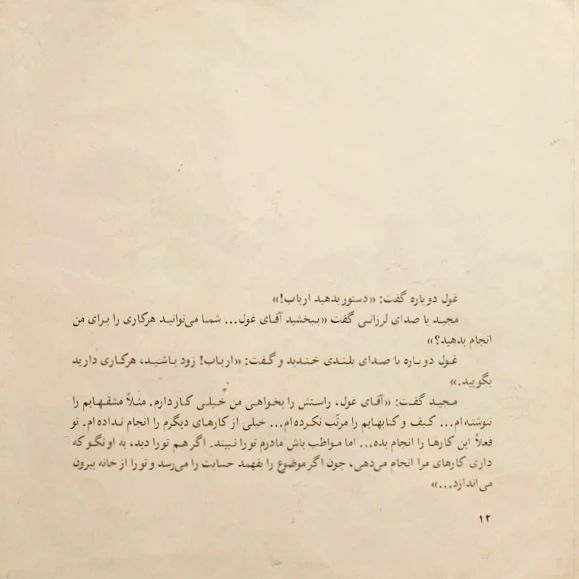 غول دوباره گفت: «دستور بدهید ارباب!»
مجید با صدای لرزانی گفت «ببخشید آقای غول... شما می‌توانید هرکاری را برای من
انجام بدهید؟»
غول دوباره با صدای بلندی خندید و گفت: «ارباب! زود باشید، هرکاری دارید
بگویید.»
مجید گفت: «آقای غول، راستش را بخواهی من خیلی کار دارم. مثلاً مشقهایم را
ننوشته‌ام... کیف و کتابهایم را مرتّب نکرده‌ام... خیلی از کارهای دیگرم را انجام نداده‌ام. تو
فعلاً این کارها را انجام بده... اما مواظب باش مادرم تو را نبیند. اگر هم تو را دید، به او نگو که
داری کارهای مرا انجام می‌دهی، چون اگر موضوع را بفهمد حسابت را می‌رسد و تو را از خانه بیرون
می‌اندازد...»
۱۲